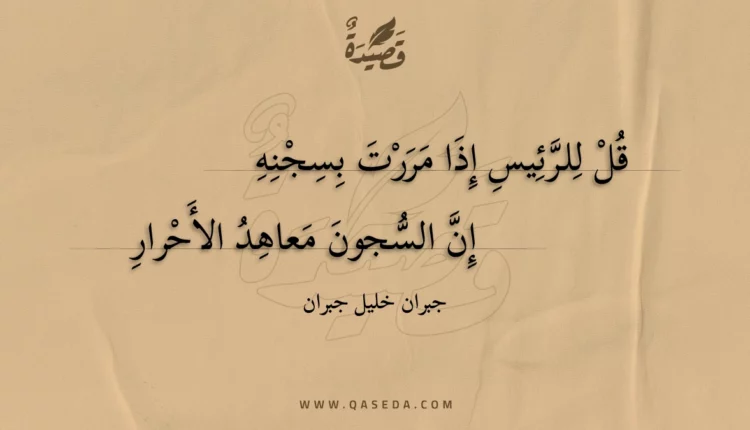 قَصِيْدَةٌ
قُلْ لِلرَّئِيسِ إِذَا مَرَرْتَ بِسِجْنِهِ
إِنَّ السُّجونَ مَعاهِدُ الأَحْرارِ
جبران خليل جبران
WWW.QASEDA.COM